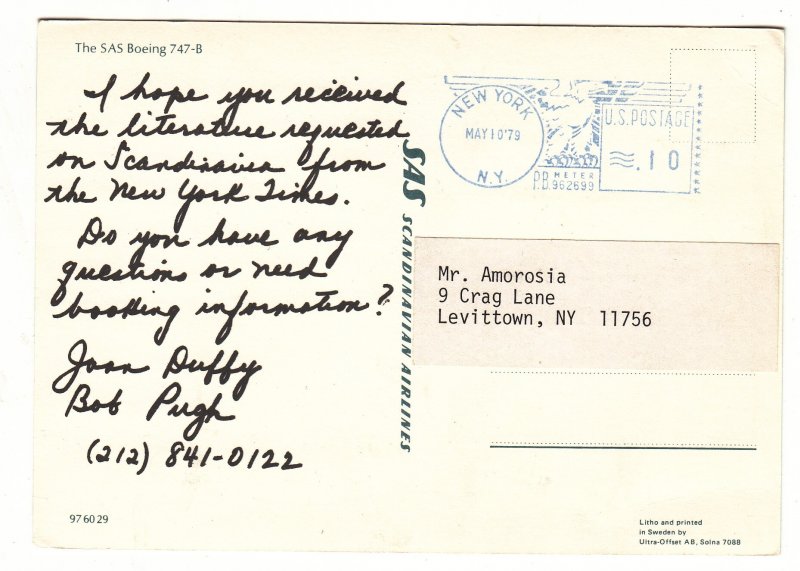 The SAS Boeing 747-B
I hope you received
the literature requested
on Scandinavia from
the New York Times.
Do you have any
questions or need
booking information?
Joan Duffy
Bob Pugh
(212) 841-0122
976029
SAS SCANDINAVIAN AIRLINES
NEW YORK
MAY10'79
N.Y.
U.S. POSTAGE
.10
P.B. METER
962699
Mr. Amorosia
9 Crag Lane
Levittown, NY 11756
Litho and printed
in Sweden by
Ultra-Offset AB, Solna 7088